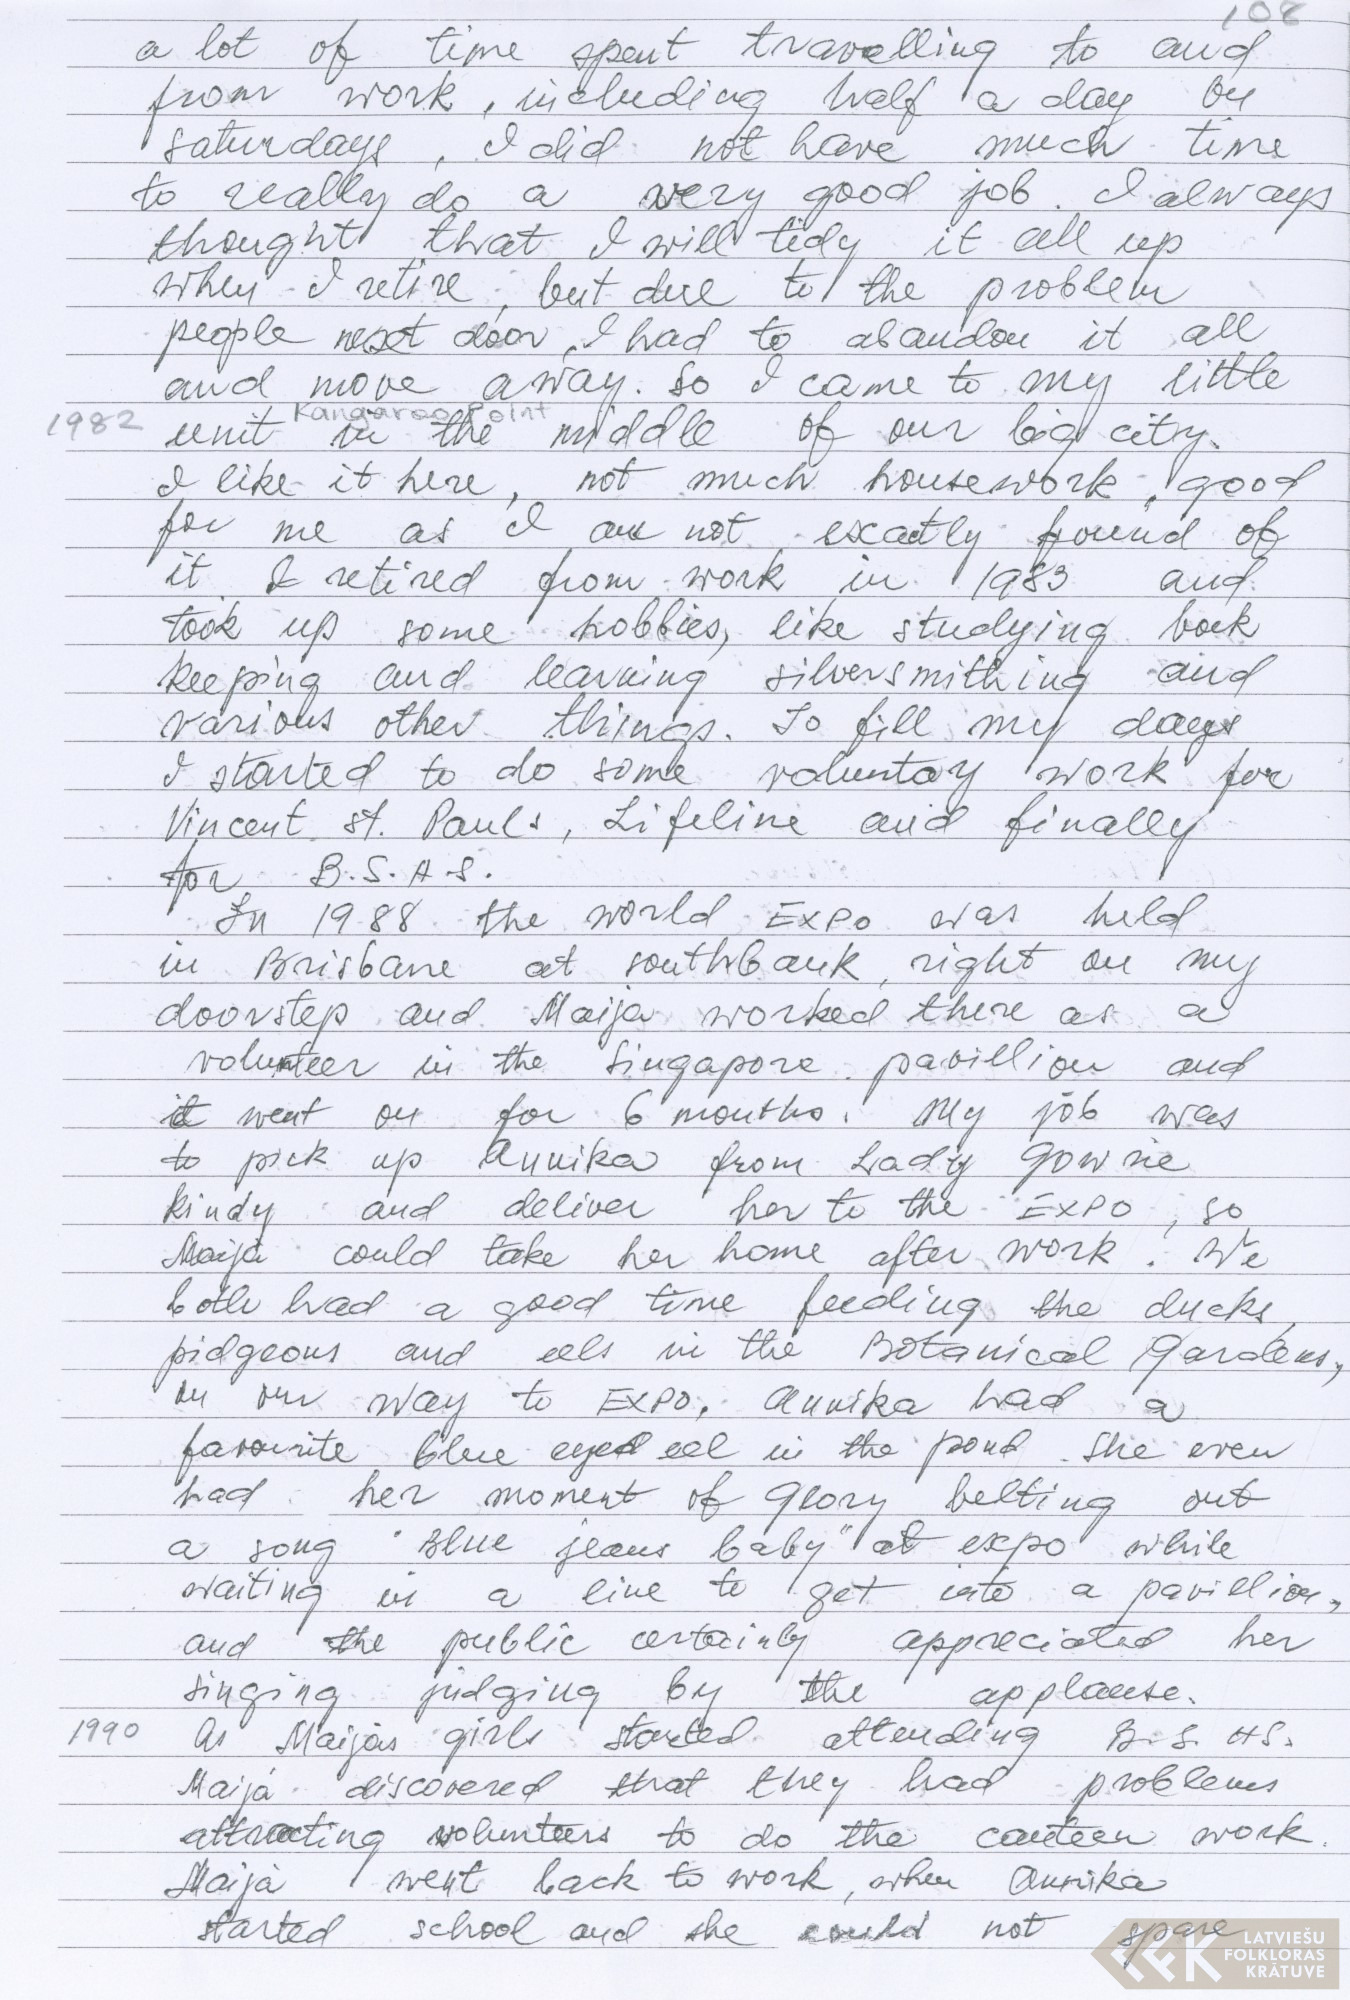 108
a lot of time spent travelling to and
from work, including half a day on
saturdays, I did not have much time
to really do a very good job. I always
thought that I will tidy it all up
when I retire, but due to the problem
people next door, I had to abandon it all
and move away. So I came to my little
1982 unit in the middle of our big city.
Kangaroo Point
I like it here, not much housework, good
for me as I am not exactly found of
it I retired from work in 1983 and
took up some hobbies, like studying book
keeping and learning silversmithing and
various other things. To fill my days
I started to do some voluntay work for
Vincent st. Pauls, Lifeline and finally
for B.S.H.S.
In 1988 the world EXPO was held
in Brisbane at southbank, right on my
doorstep and Maija worked there as a
volunteer in the Singapore pavillion and
it went on for 6 months. My job was
to pick up Annika from Lady Gowrie
kindy and deliver her to the EXPO, so
Maija could take her home after work. We
both had a good time feeding the ducks,
pidgeons and eels in the Botanical Gardens,
on our way to EXPO. Annika had a
favourite blue eyed eel in the pond. She even
had her moment of glory belting out
a song "Blue jeans baby" at expo while
waiting in a line to get into a pavillion,
and the public certainly appreciated her
singing judging by the applause.
1990 As Maijas girls started attending B.S.HS.
Maija discovered that they had problems
attracting volunteers to do the canteen work.
Maija went back to work, when Annika
started school and she could not spare
LATVIEŠU
FOLKLORAS
KRĀTUVE